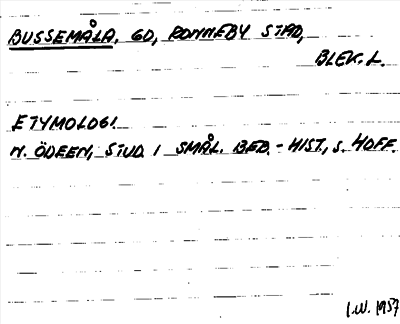 BUSSEMÅLA, GD, RONNEBY STAD,
BLEK. L.
ETYMOLOGI
N. ÖDEEN, STUD. I SMÅL. BEB. - HIST., S. HOFF.
I.W. 1957